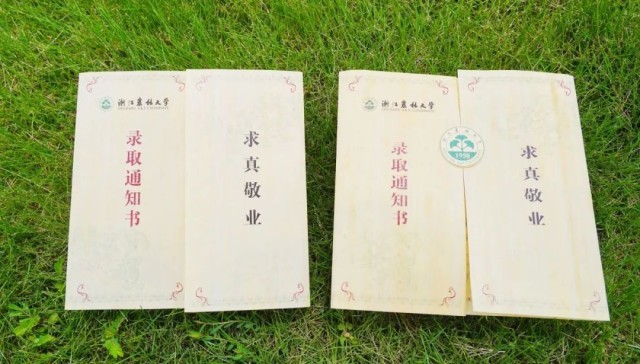 浙江农林大学
录取通知书
求真敬业
浙江农林大学
录取通知书
1958
求真敬业